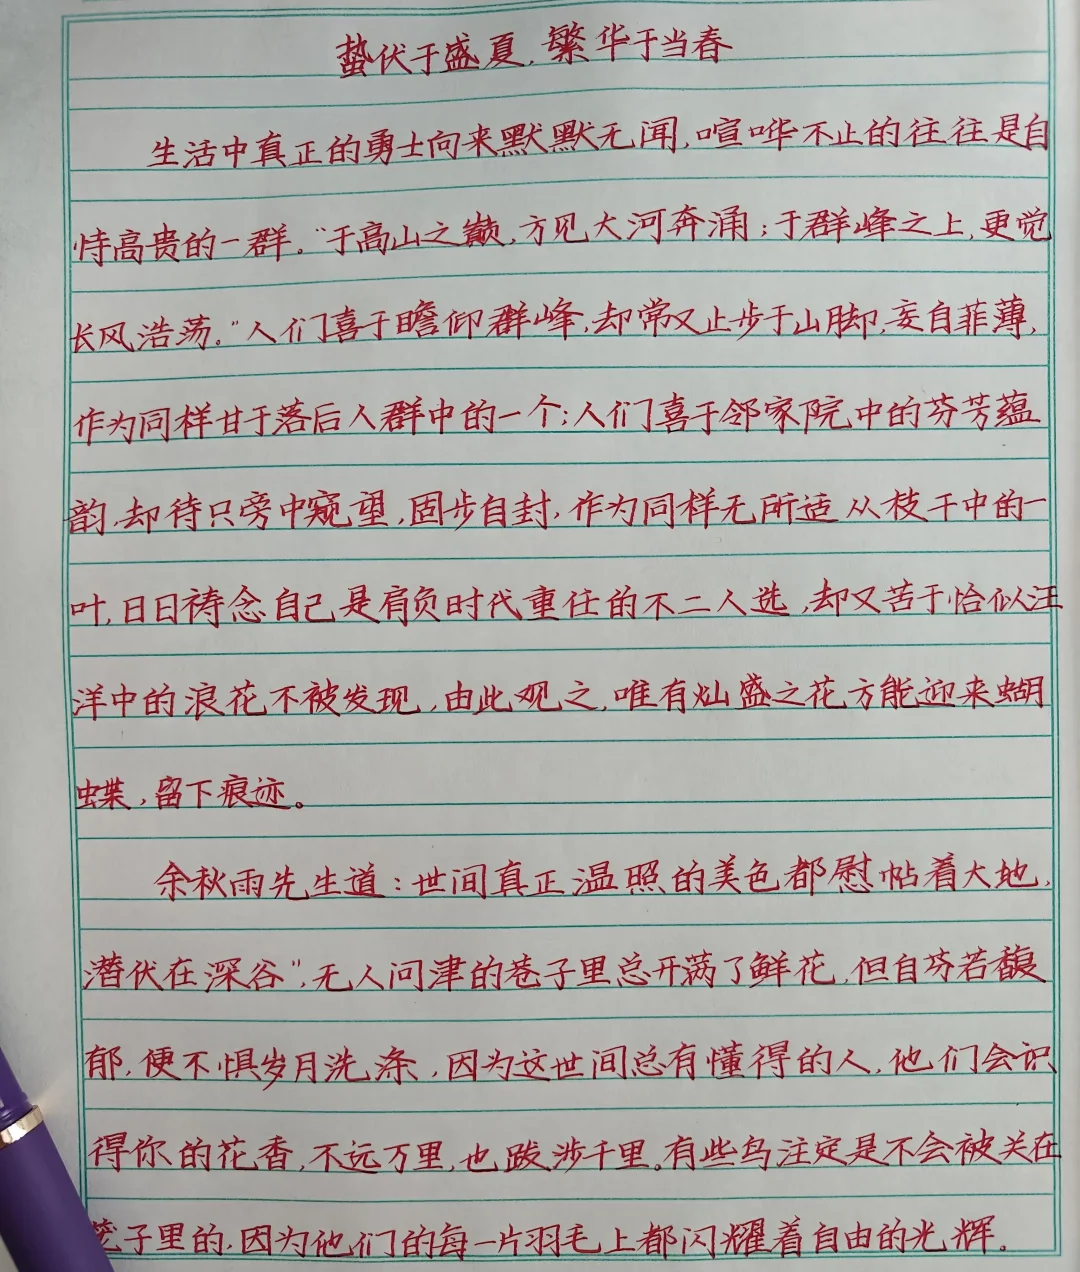 蛰伏于盛夏，繁华于当春
生活中真正的勇士向来默默无闻，喧哗不止的往往是自
恃高贵的一群。“于高山之巅，方见大河奔涌；于群峰之上，更觉
长风浩荡。”人们喜于瞻仰群峰，却常又止步于山脚，妄自菲薄，
作为同样甘于落后人群中的一个；人们喜于邻家院中的芬芳蕴
韵，却待只旁中窥望，固步自封，作为同样无所适从枝干中的一
叶，日日祷念自己是肩负时代重任的不二人选，却又苦于恰似汪
洋中的浪花不被发现，由此观之，唯有灿盛之花方能迎来蝴
蝶，留下痕迹。
余秋雨先生道：世间真正温照的美色都慰帖着大地，
潜伏在深谷”，无人问津的巷子里总开满了鲜花，但自芬若馥
郁，便不惧岁月洗涤，因为这世间总有懂得的人，他们会识
得你的花香，不远万里，也跋涉千里。有些鸟注定是不会被关在
笼子里的，因为他们的每一片羽毛上都闪耀着自由的光辉。